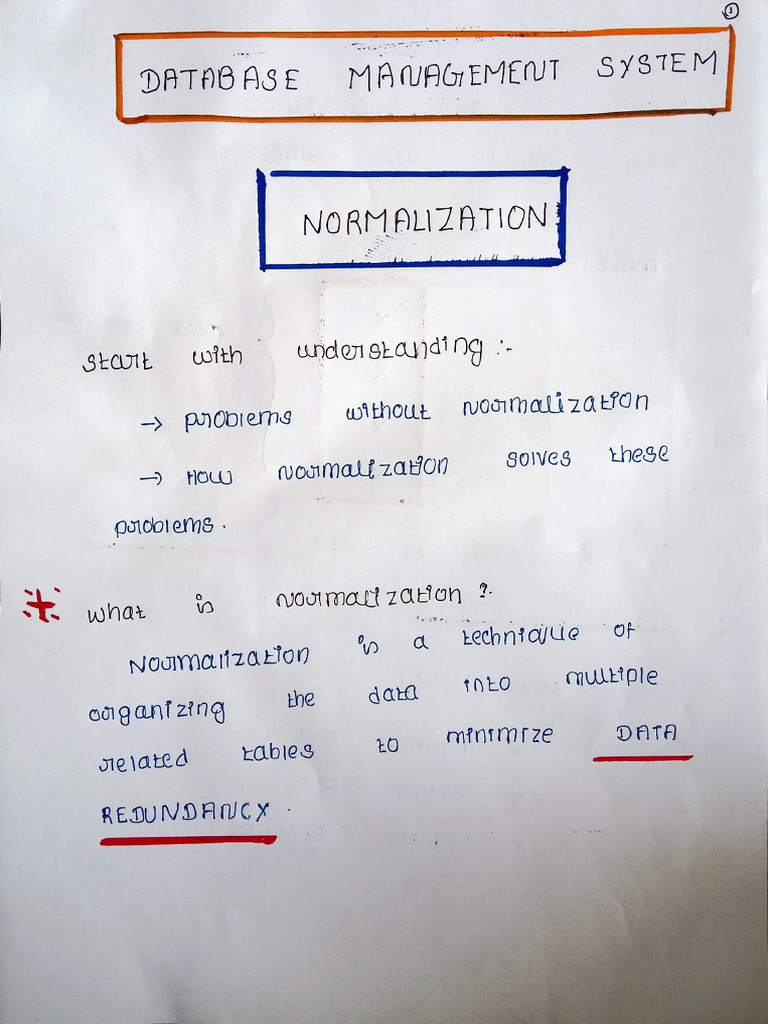 1
DATABASE MANAGEMENT SYSTEM
NORMALIZATION
start with understanding :-
→ problems without normalization
→ How normalization solves these
problems.
What is normalization ?
Normalization is a technique of
organizing the data into multiple
related tables to minimize DATA
REDUNDANCY.